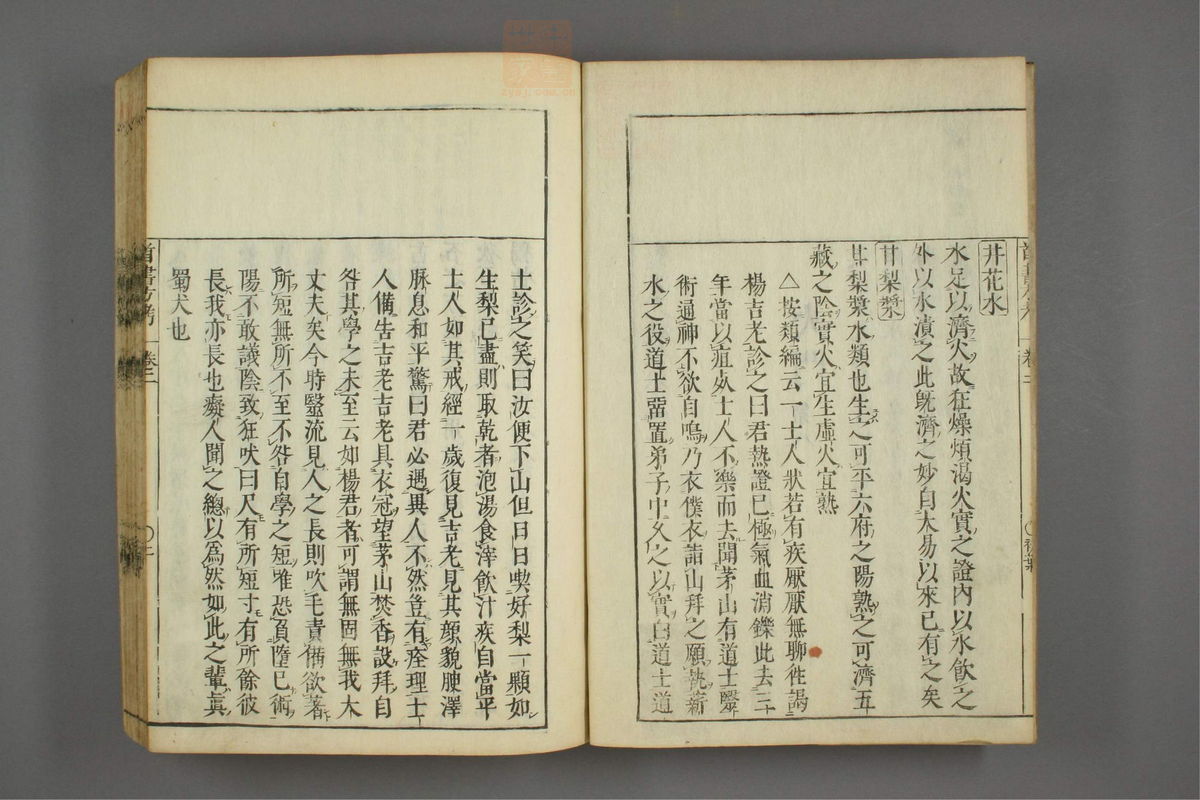 井花水
水足以濟火故狂燥煩渴火實之證內以水飲之
外以水漬之此旣濟之妙自太易以來已有之矣
甘梨漿
甘梨漿水類也生之可平六府之陽熟之可濟五
藏之陰實火宜生虛火宜熟
△按類編云一士人狀若有疾厭厭無聊徃謁
楊吉老診之曰君熱證已極氣血消鑠此去三
年當以疽死士人不樂而去聞茅山有道士醫
術通神不欲自鳴乃衣僕衣詣山拜之願執薪
水之役道士留置弟子中久之以實白道士道
士診之笑曰汝便下山但日日喫好梨一顆如
生梨已盡則取乾者泡湯食滓飲汁疾自當平
士人如其戒經一歲復見吉老見其顏貌腴澤
脉息和平驚曰君必遇異人不然豈有痊理士
人備告吉老吉老具衣冠望茅山焚香設拜自
咎其學之未至云如楊君者可謂無固無我大
丈夫矣今時醫流見人之長則吹毛責備欲著
所短無所不至不咎自學之短唯恐負墮已術
陽不敢議陰致狂吠曰尺有所短寸有所餘彼
長我亦長也癡人聞之總以爲然如此之輩眞
蜀犬也
卷三
〇二